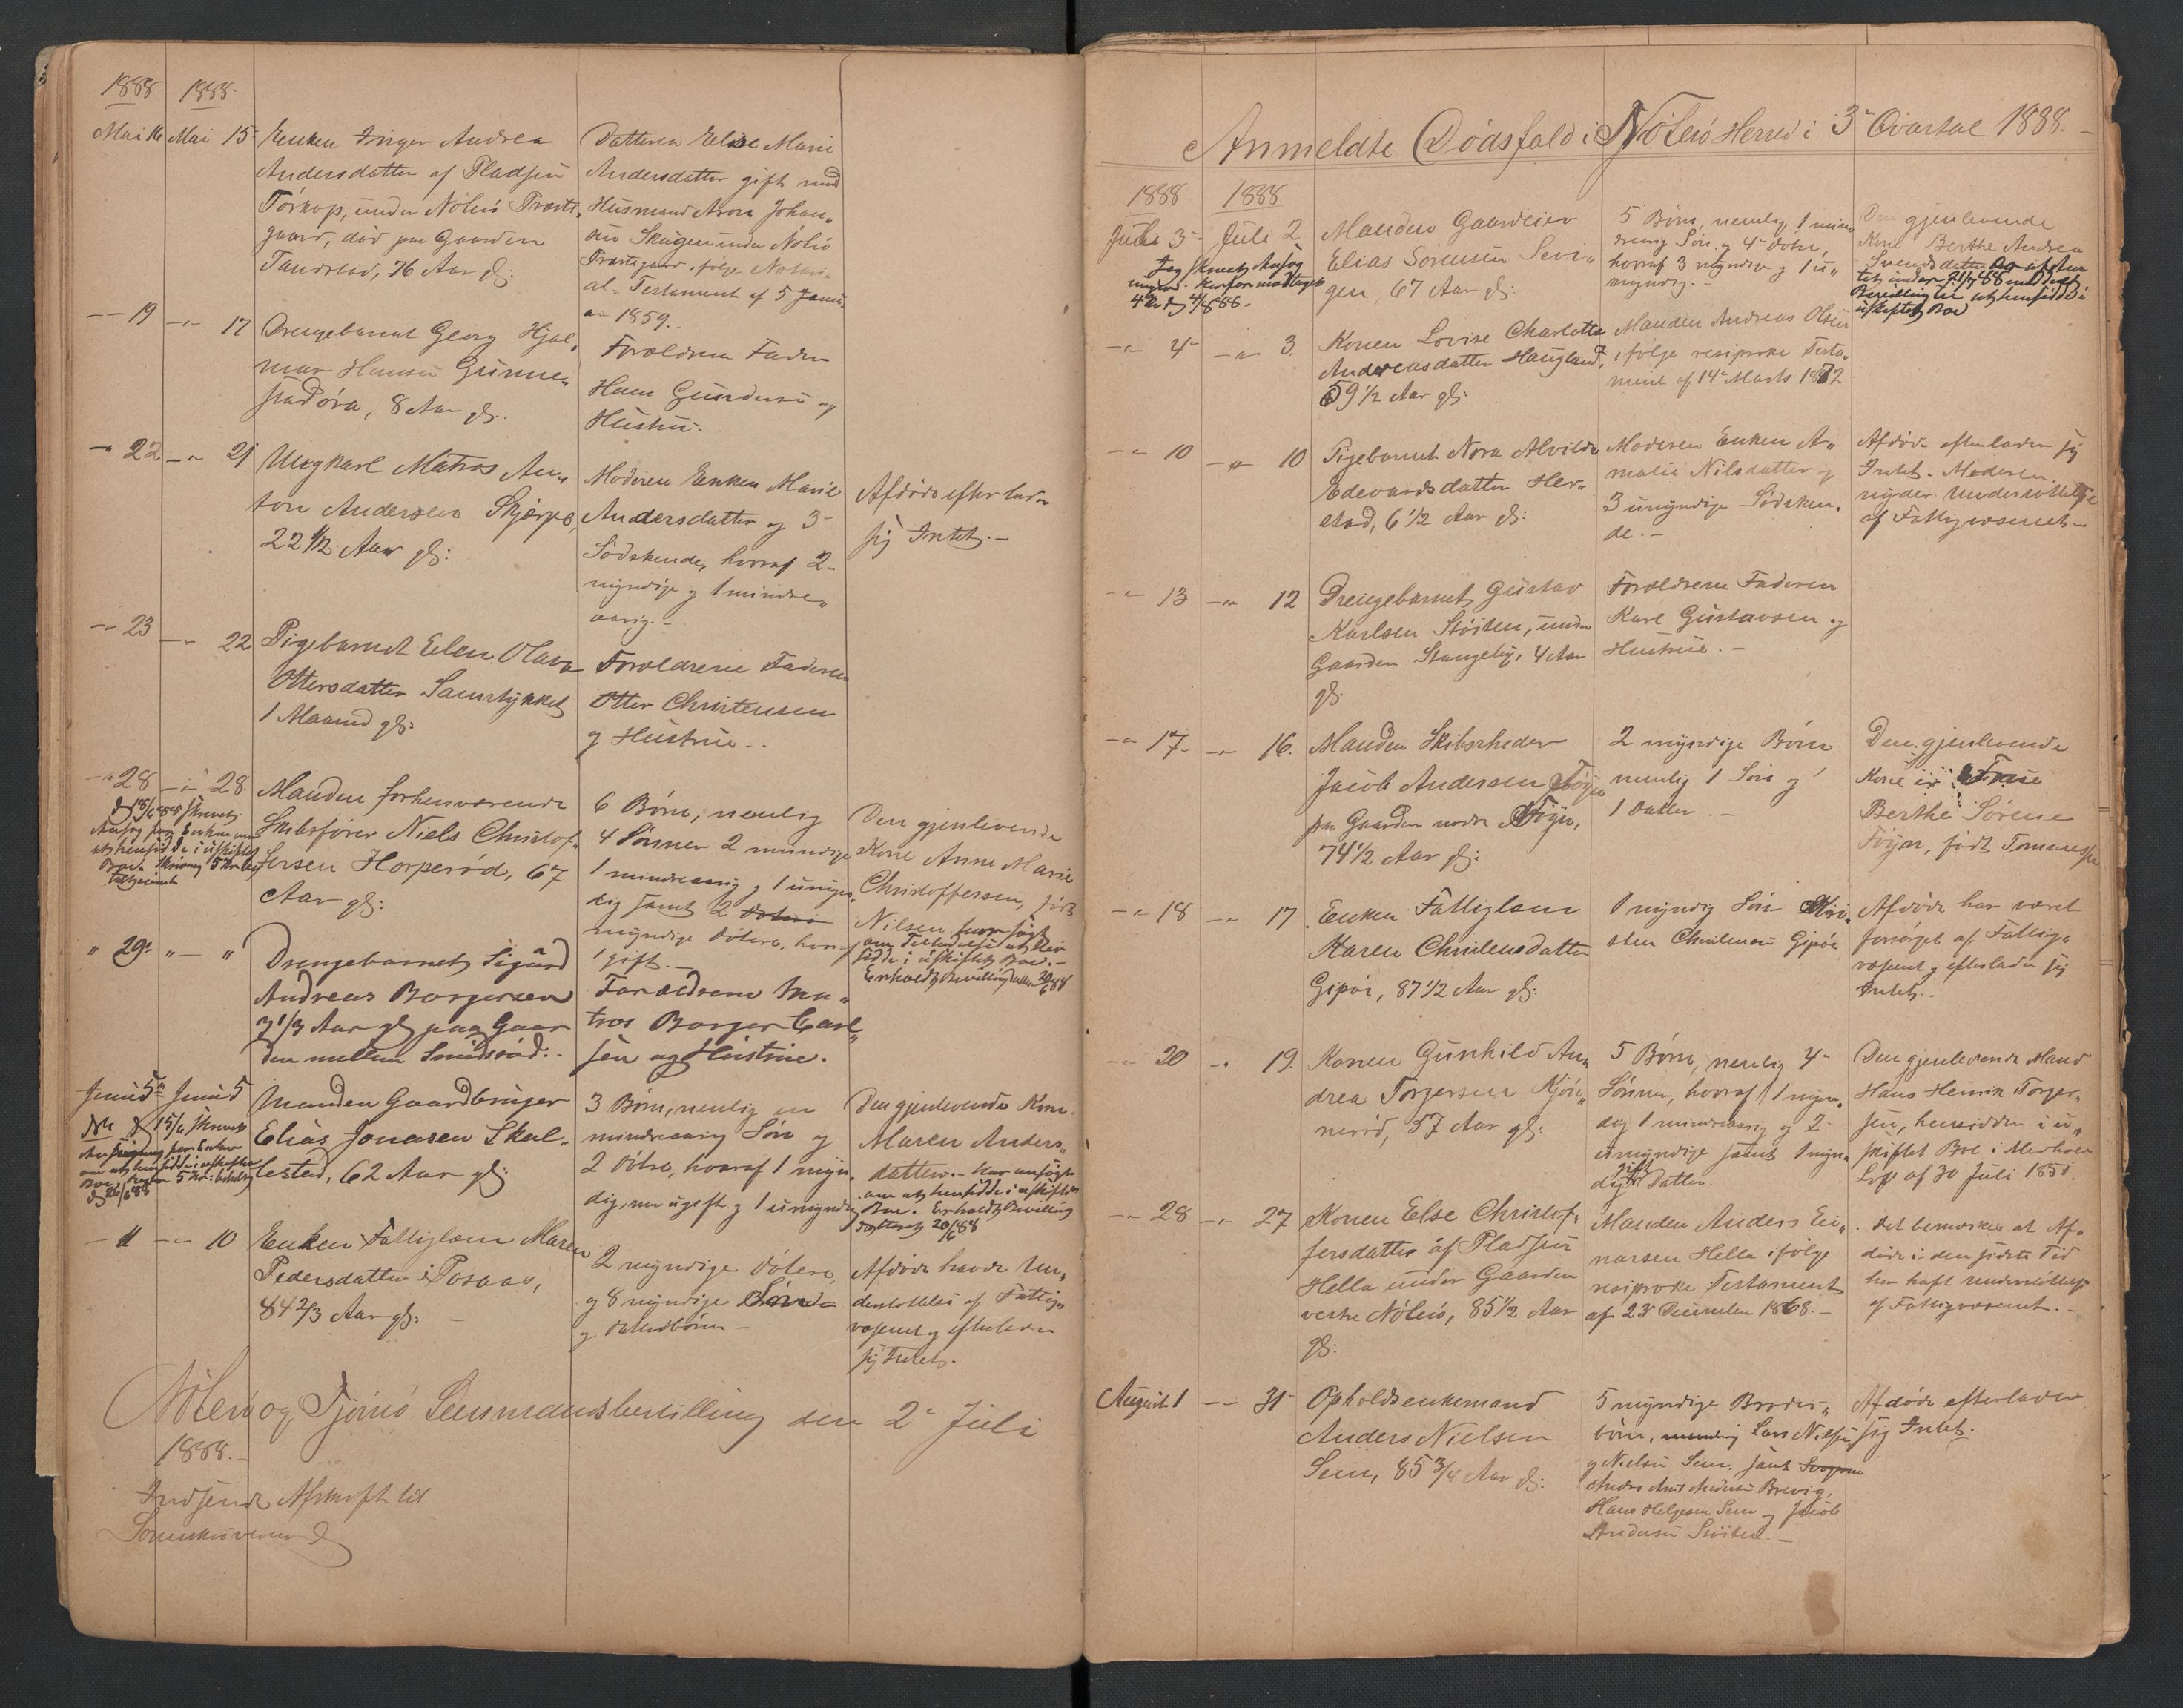 1888 1888.
Mai 16 Mai 15 Enken Inger Andrea
Andersdatter af Pladsen
Torkop, under Nøterø Præste„
gaard, død paa Gaarden
Tandstad, 76 Aar gl:
Datteren Elise Marie
Andersdatter gift med
Husmand Aron Johan„
sen Skagen under Nøterø
Præstegaard. følge Notari„
al-Testament af 5 Janu„
ar 1859.
-"- 19 -"- 17 Drengebarnet Georg Hjal„
mar Hansen Gunne„
stadøra, 8 Aar gl:
Forældrene Faderen
Hans Gundersen og
Hustru.
-"- 22 -"- 21 Ungkarl Matros An„
ton Andersen Skjerpe,
22 1/2 Aar gl:
Moderen Enken Marie
Andersdatter og 3
Sødskende, hvoraf 2
myndige og 1 mindre„
aarig.-
Afdøde efterlader
sig Intet.-
-"- 23 -"- 22 Pigebarnet Elen Olava
Ottersdatter Saurstykket
1 Maaned gl:
Forældrene Faderen
Otter Christensen
og Hustrue..
-"- 28 -"- 28. Manden forhenværende
Skibsfører Niels Christof„
fersen Horperød, 67
Aar gl:
6 Børn, nemlig
4 Sønner 2 myndige
1 mindreaarig og 1 umyn„
dig samt 2
myndige Døtere, hvoraf
1 gift.-
Den gjenlevende
Kone Anne Marie
Christoffersen, født
Nilsen har søgt
om Tilladelse at hen
sidde i uskiftet Boe.-
Erholdt Bevilling 20/6 88
" 29 "-" Drengebarnet Sigurd
Andreas Borgersen
3 1/3 Aar gl: paa Gaar
den mellem Smidsrød.-
Forældrene Ma„
tros Borger Carl„
sen og Hustrue.
Juni 5 Juni 5 Manden Gaardbruger
Elias Jonasen Skal„
lestad, 62 Aar gl:
3 Børn, nemlig en
mindreaarig Søn og
2 Døtre, hvoraf 1 myn„
dig, men ugift og 1 umyndig
Den gjenlevende Kone
Maren Anders„
datter.- Har ansøgt
om at hensidde i uskiftet
Boe. Erholdt Bevilling
dateret 20/6 88
- 11 -"- 10 Enken Fattiglem Maren
Pedersdatter i Tosaas,
84 2/3 Aar gl:
2 myndige Døtere,
og 8 myndige
og Datterbørn -
Afdøde havde Un„
derstøttelse af Fattig„
væsenet og efterlader
sig Intet.
Nøterø og Tjømø Lensmandsbestilling den 2 Juli
1888.-
Indsendt Afskrift til
Sorenskriveren
Anmeldte Dødsfald i Nøterø Herred i 3 Qvartal 1888.-
1888 1888
Juli 3 Juli 2 Manden Gaardeier
Elias Sørensen Sevi„
gen, 67 Aar gl:
5 Børn, nemlig 1 mind
reaarig Søn og 4 Døtre,
hvoraf 3 myndige og 1 u„
myndig.-
Den gjenlevende
Kone Berthe Andrea
Svendsdatter
Bevilling til at hensidde i
uskiftet Boe
-"- 4 -"- 3. Konen Lovise Charlotte
Andreasdatter Haugland,
59 1/2 Aar gl:
Manden Andreas Olsen
ifølge resiproke Testa„
ment af 14 Marts 1872
-"- 10 -"- 10 Pigebarnet Nora Alvilde
Edevardsdatter Her„
stad, 6 1/2 Aar gl:
Moderen Enken A„
malie Nilsdatter og
3 umyndige Sødsken„
de.-
Afdøde efterlader sig
Intet. Moderen
nyder Understøttelse
af Fattigvæsenet.-
-"- 13 -"- 12 Drengebarnet Gustav
Karlsen Støiten, under
Gaarden Stangeby, 4 Aar
gl:
Forældrene Faderen
Karl Gustavsen og
Hustrue.-
-"- 17 -"- 16. Manden Skibsrheder
Jacob Andersen Føyn
paa Gaarden nedre Føyn,
74 1/2 Aar gl:
2 myndige Børn
nemlig 1 Søn og
1 Datter.-
Den gjenlevende
Kone er Frue
Berthe Sørene
Føyn, født Tommesen
-"- 18 -"- 17 Enken Fattiglem
Karen Christensdatter
Gipøe, 87 1/2 Aar gl:
1 myndig Søn Kri„
sten Christensen Gipøe
Afdøde har været
forsørget af Fattig„
væsenet og efterlader sig
Intet.-
-"- 20 -"- 19. Konen Gunhild An„
drea Torgersen Kjøn„
nerød, 57 Aar gl:
5 Børn, nemlig 4
Sønner, hvoraf 1 myn„
dig 1 mindreaarig og 2
umyndige samt 1 myn„
dig gift Datter.
Den gjenlevende Mand
Hans Henrik Torger„
sen, hensidder i u„
skiftet Boe i Medhold
Lov af 30 Juli 1851.
-"- 28 -"- 27 Konen Else Christof„
fersdatter af Pladsen
Hella under Gaarden
vestre Nøterø, 85 1/2 Aar
gl:
Manden Anders Ei„
narsen Hella ifølge
resiproke Testament
af 23 December 1868.-
Det bemærkes at Af„
døde i den sidste Tid
har haft Understøttelse
af Fattigvæsenet.-
August 1 -"- 31 Opholdsenkemand
Anders Nielsen
Sem, 85 3/4 Aar gl:
5 myndige Broder„
børn, nemlig Lars Nilsen
og Nielsen Sem. samt
Anders Andersen Brevig,
Hans Helgesen Sem og Jacob
Andersen Støiten.-
Afdøde efterlader
sig Intet.